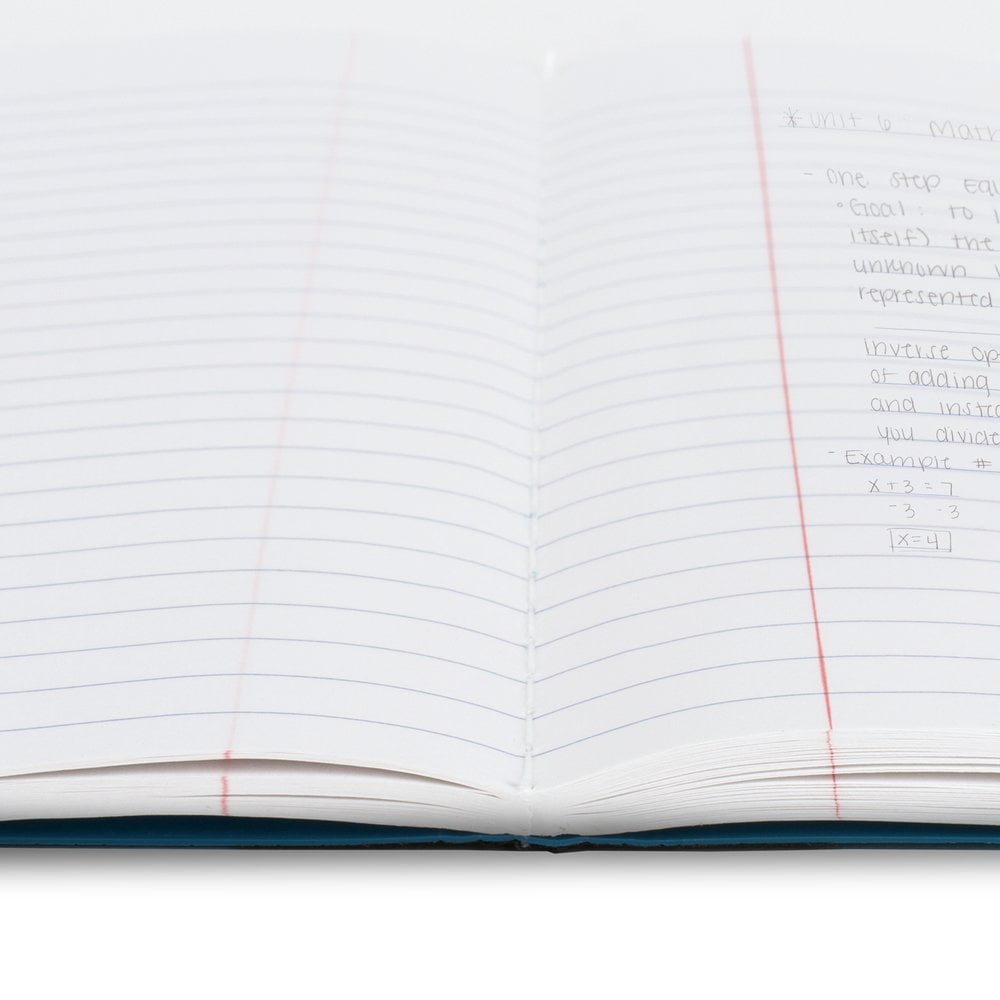 * unit 6 Math
- one step equ
° Goal: to i
itself) the
unknown v
represented
inverse op
of adding
and inste
you divide
- Example #
x + 3 = 7
-3 -3
x = 4